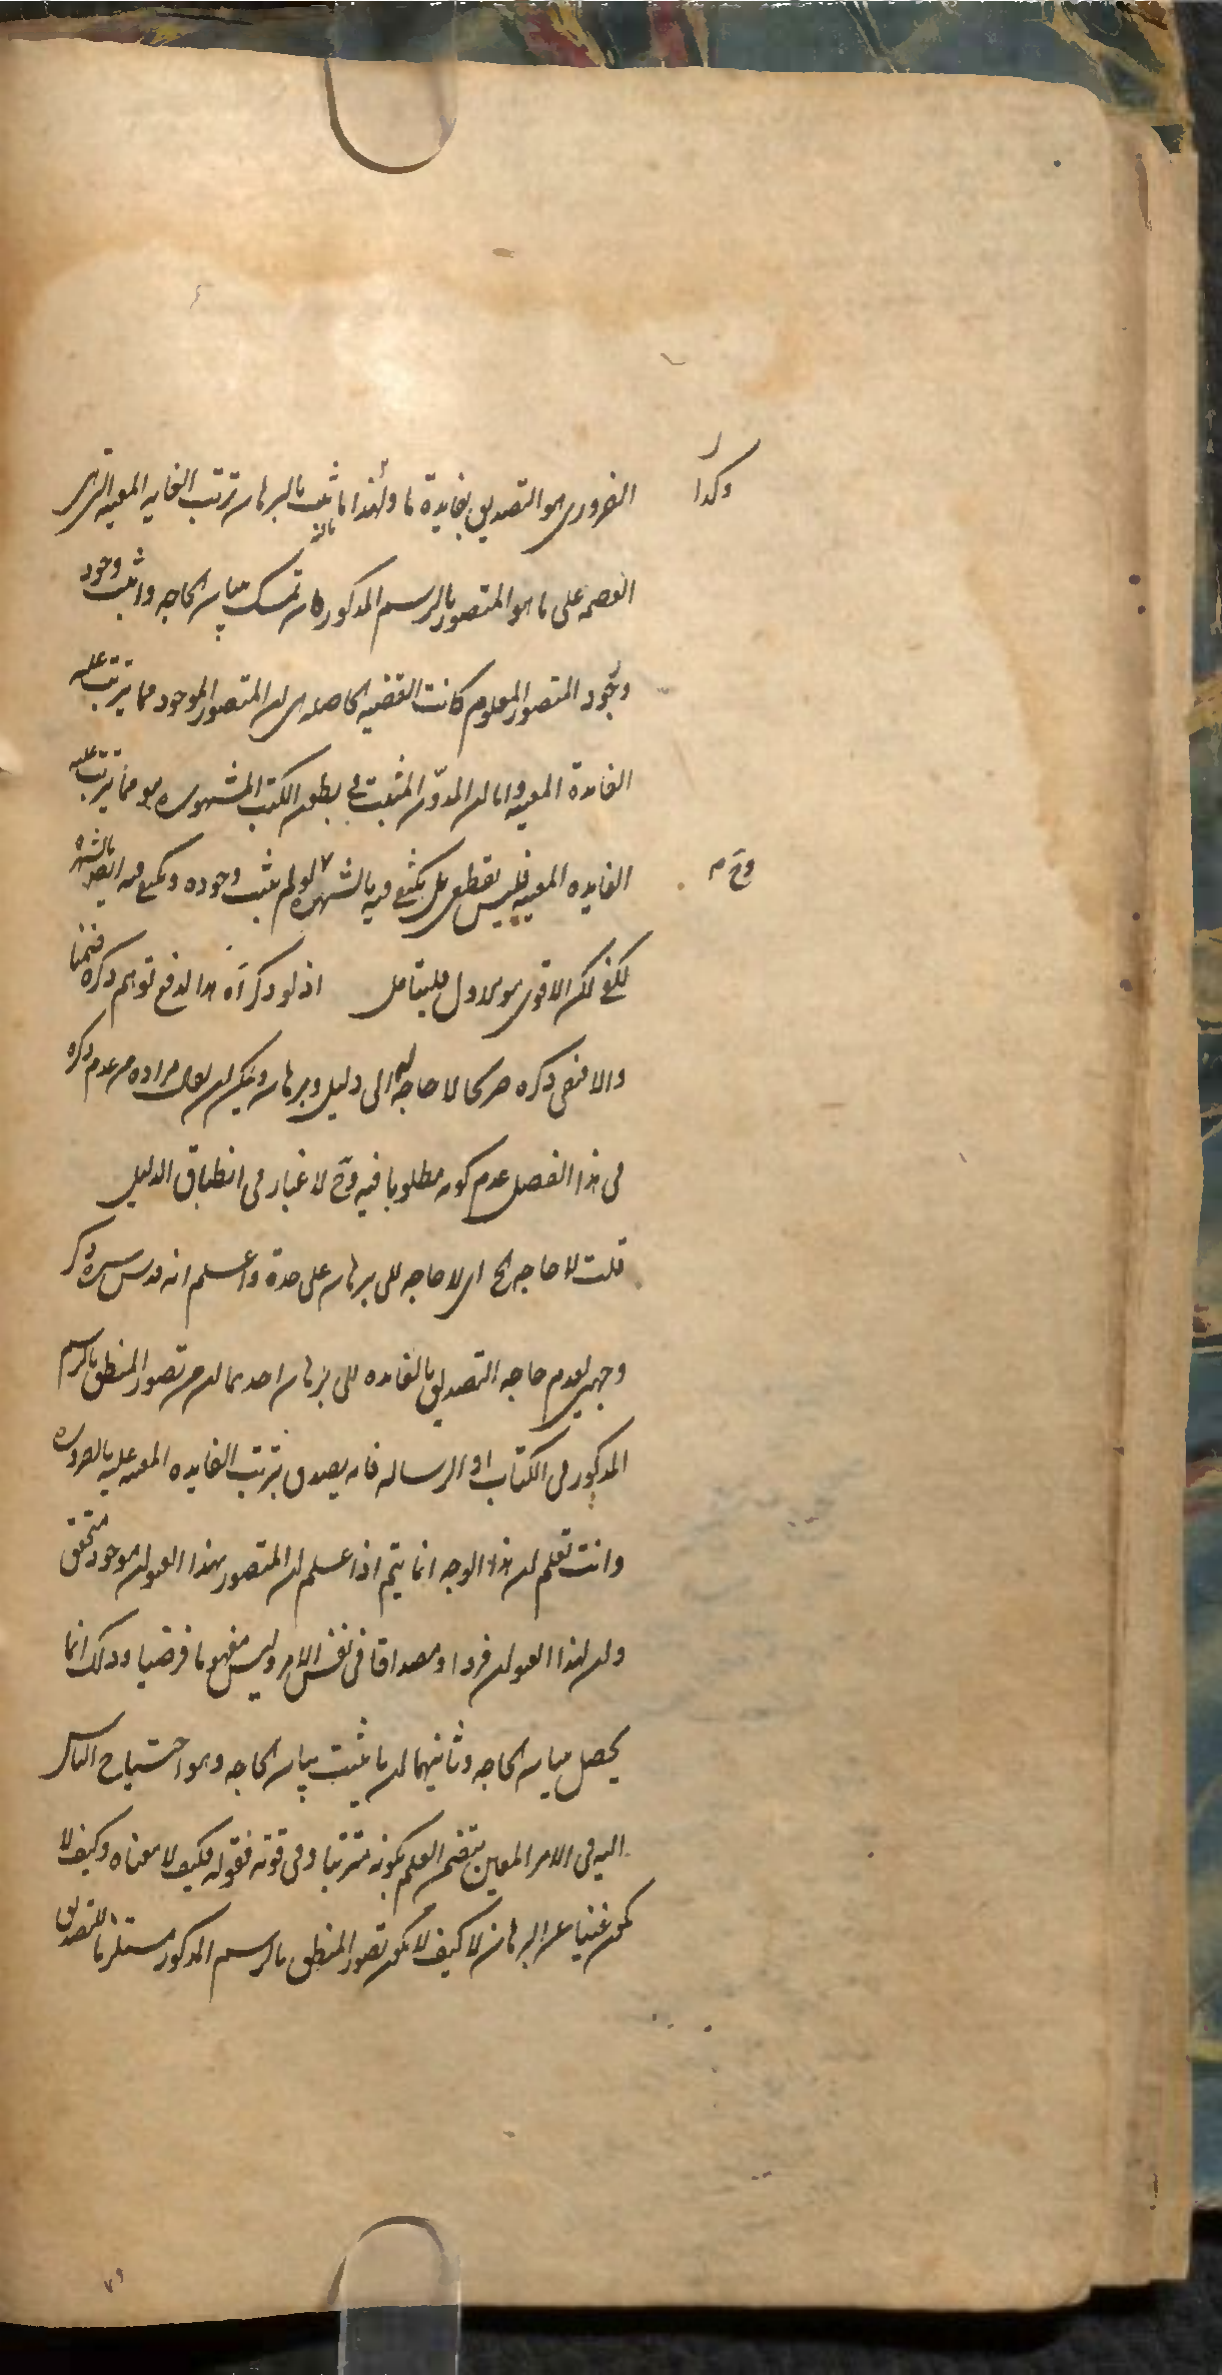 وكذا
الضرورى هو التصديق بفايدة ما ولهذا ما ثبت بالبرهان ترتب الغايه المعينه التى هى
العصمه على ما هو المتصور بالرسم المذكور كان تمسك ببيان الحاجه واثبت وجود
وجود المتصور المعلوم كانت القضيه الحاصله هى ان المتصور الموجود مما يترتب عليه
الفائدة المعينه واما ان المدوّن المثبت فى بطون الكتب المشهوره هو مما يترتب عليه
وح م
الفايده المعينه فليس بقطعى بل يكتفى فيه بالشهره ولو لم يثبت وجوده ويكتفى فيه ايضا بالشهره
لكفى لكن الاقوى هو الاول فليتامل اذ لو ذكر آه هذا لدفع توهم ذكره ضمنا
والا فنفى ذكره صريحا لا حاجة له الى دليل وبرهان ويمكن ان يقال مراده من عدم ذكره
فى هذا الفصل عدم كونه مطلوبا فيه وح لا غبار فى انطباق الدليل
قلت لا حاجه الخ اى لا حاجه الى برهان على حدة واعلم انه قدس سره ذكر
وجهين لعدم حاجه التصديق بالفائده الى برهان احدهما ان من تصور المنطق بالرسم
المذكور فى الكتاب او الرساله فانه يصدق بترتب الفايده المعينه عليه بالضروره
وانت تعلم ان هذا الوجه انما يتم اذا علم ان المتصور بهذا العنوان موجود متحقق
وان لهذا العنوان فردا ومصداقا فى نفس الامر وليس مفهوما فرضيا وذلك انما
يحصل ببيان الحاجه وثانيهما ان ما يثبت ببيان الحاجه وهو احتياج الناس
اليه فى الامر المعين يتضمن العلم بكونه مترتبا وفى قوته فقوله فكيف لا معناه وكيف لا
يكون غنيا عن البرهان لا كيف لا يكون تصور المنطق بالرسم المذكور مستلزما للتصديق